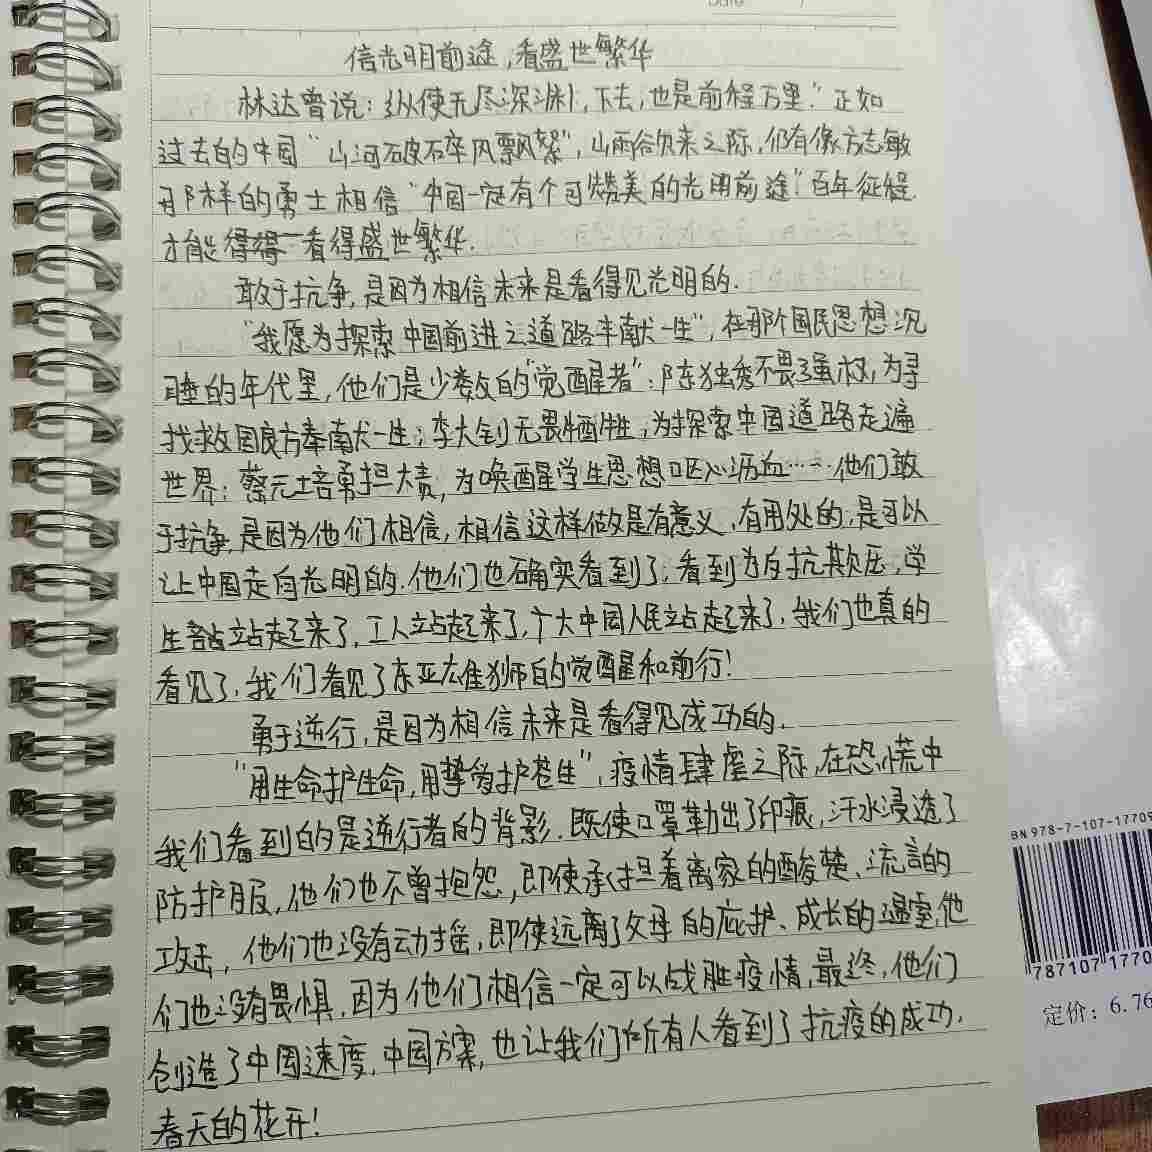 Date
信光明前途,看盛世繁华
林达曾说:纵使无尽深渊,下去,也是前程万里."正如
过去的中国"山河破碎风飘絮",山雨欲来之际,仍有像方志敏
那样的勇士相信"中国一定有个可赞美的光明前途"百年征程.
才能得得一看得盛世繁华.
敢于抗争,是因为相信未来是看得见光明的.
"我愿为探索中国前进之道路奉献一生",在那个国民思想沉
睡的年代里,他们是少数的"觉醒者":陈独秀不畏强权,为寻
找救国良方奉献一生;李大钊无畏牺牲,为探索中国道路走遍
世界;蔡元培勇担大责,为唤醒学生思想呕心沥血……他们敢
于抗争,是因为他们相信,相信这样做是有意义,有用处的,是可以
让中国走向光明的.他们也确实看到了,看到为反抗欺压,学
生都站起来了,工人站起来了,广大中国人民站起来了.我们也真的
看见了,我们看见了东亚雄狮的觉醒和前行!
勇于逆行,是因为相信未来是看得见成功的.
"用生命护生命,用挚爱护苍生",疫情肆虐之际,在恐慌中
我们看到的是逆行者的背影.既使口罩勒出了印痕,汗水浸透了
防护服,他们也不曾抱怨,即使承担着离家的酸楚、流言的
攻击,他们也没有动摇,即使远离了父母的庇护、成长的温室,他
们也没有畏惧.因为他们相信一定可以战胜疫情,最终,他们
创造了中国速度,中国方案,也让我们所有人看到了抗疫的成功.
春天的花开!
BN 978-7-107-17709
787107 1770
定价:6.76